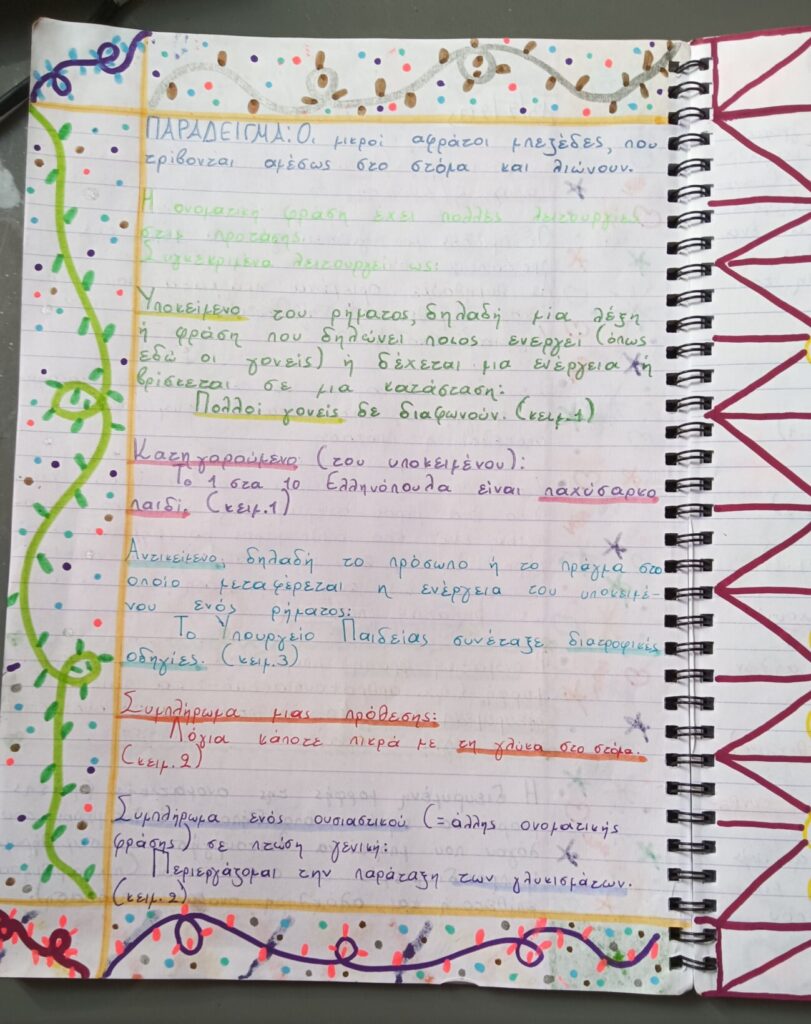 ΠΑΡΑΔΕΙΓΜΑ: Οι μικροί αφράτοι μπεζέδες, που
τρίβονται αμέσως στο στόμα και λιώνουν.
Η ονοματική φράση έχει πολλές λειτουργίες
στην πρόταση.
Συγκεκριμένα λειτουργεί ως:
Υποκείμενο του ρήματος, δηλαδή μία λέξη
ή φράση που δηλώνει ποιος ενεργεί (όπως
εδώ οι γονείς) ή δέχεται μια ενέργεια ή
βρίσκεται σε μια κατάσταση:
Πολλοί γονείς δε διαφωνούν. (κειμ.1)
Κατηγορούμενο (του υποκειμένου):
Το 1 στα 10 Ελληνόπουλα είναι παχύσαρκο
παιδί. (κειμ.1)
Αντικείμενο, δηλαδή το πρόσωπο ή το πράγμα στο
οποίο μεταφέρεται η ενέργεια του υποκειμέ-
νου ενός ρήματος:
Το Υπουργείο Παιδείας συνέταξε διατροφικές
οδηγίες. (κειμ.3)
Συμπλήρωμα μιας πρόθεσης:
Λόγια κάποτε πικρά με τη γλύκα στο στόμα.
(κειμ.2)
Συμπλήρωμα ενός ουσιαστικού (=άλλης ονοματικής
φράσης) σε πτώση γενική:
Περιεργάζομαι την παράταξη των γλυκισμάτων.
(κειμ.2)